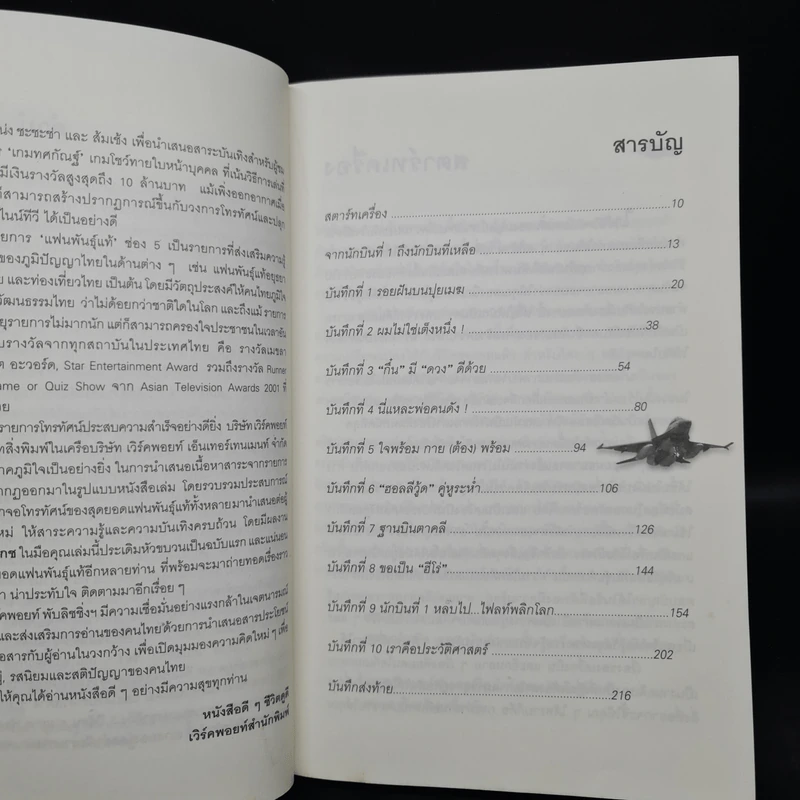 น่ง ชะชะช่า และ ส้มเช้ง เพื่อนำเสนอสาระบันเทิงสำหรับผู้ชม
'เกมทศกัณฐ์' เกมโชว์ทายใบหน้าบุคคล ที่เน้นวิธีการเล่นที่
มีเงินรางวัลสูงสุดถึง 10 ล้านบาท แม้เพิ่งออกอากาศเมื่อ
ก็สามารถสร้างปรากฏการณ์ขึ้นกับวงการโทรทัศน์และปลุก
ไนน์ทีวี ได้เป็นอย่างดี
ยการ 'แฟนพันธุ์แท้' ช่อง 5 เป็นรายการที่ส่งเสริมความรู้
ของภูมิปัญญาไทยในด้านต่าง ๆ เช่น แฟนพันธุ์แท้อยุธยา
ย และท่องเที่ยวไทย เป็นต้น โดยมีวัตถุประสงค์ให้คนไทยภูมิใจ
วัฒนธรรมไทย ว่าไม่ด้อยกว่าชาติใดในโลก และถึงแม้ รายการ
ยุรายการไม่มากนัก แต่ก็สามารถครองใจประชาชนในเวลาอัน
บรางวัลจากทุกสถาบันในประเทศไทย คือ รางวัลเมขลา
ต อะวอร์ด, Star Entertainment Award รวมถึงรางวัล Runner
ame or Quiz Show จาก Asian Television Awards 2001 ที่
ทย
รายการโทรทัศน์ประสบความสำเร็จอย่างดียิ่ง บริษัทเวิร์คพอยท์
ทสิ่งพิมพ์ในเครือบริษัท เวิร์คพอยท์ เอ็นเทอร์เทนเมนท์ จำกัด
าคภูมิใจเป็นอย่างยิ่ง ในการนำเสนอเนื้อหาสาระจากรายการ
ากฏออกมาในรูปแบบหนังสือเล่ม โดยรวบรวมประสบการณ์
าจอโทรทัศน์ของสุดยอดแฟนพันธุ์แท้ทั้งหลายมานำเสนอต่อผู้
ใหม่ ให้สาระความรู้และความบันเทิงครบถ้วน โดยมีผลงาน
กซ ในมือคุณเล่มนี้ประเดิมหัวขบวนเป็นฉบับแรก และแน่นอน
ยอดแฟนพันธุ์แท้อีกหลายท่าน ที่พร้อมจะมาถ่ายทอดเรื่องราว
า น่าประทับใจ ติดตามมาอีกเรื่อย ๆ
คพอยท์ พับลิชชิ่งฯ มีความเชื่อมั่นอย่างแรงกล้าในเจตนารมณ์
และส่งเสริมการอ่านของคนไทย'ด้วยการนำเสนอสารประโยชน์
อสารกับผู้อ่านในวงกว้าง เพื่อเปิดมุมมองความคิดใหม่ ๆ เพื่อ
รู้, รสนิยมและสติปัญญาของคนไทย
ให้คุณได้อ่านหนังสือดี ๆ อย่างมีความสุขทุกท่าน
หนังสือดี ๆ ชีวิตดูดี
เวิร์คพอยท์สำนักพิมพ์
สารบัญ
สตาร์ทเครื่อง 10
จากนักบินที่ 1 ถึงนักบินที่เหลือ 13
บันทึกที่ 1 รอยฝันบนปุยเมฆ 20
บันทึกที่ 2 ผมไม่ใช่เต็งหนึ่ง ! 38
บันทึกที่ 3 "กึ๋น" มี "ดวง" ดีด้วย 54
บันทึกที่ 4 นี่แหละพ่อคนดัง ! 80
บันทึกที่ 5 ใจพร้อม กาย (ต้อง) พร้อม 94
บันทึกที่ 6 "ฮอลลีวู้ด" คู่หูระห่ำ 106
บันทึกที่ 7 ฐานบินตาคลี 126
บันทึกที่ 8 ขอเป็น "ฮีโร่" 144
บันทึกที่ 9 นักบินที่ 1 หลบไป...ไฟลท์พลิกโลก 154
บันทึกที่ 10 เราคือประวัติศาสตร์ 202
บันทึกส่งท้าย 216